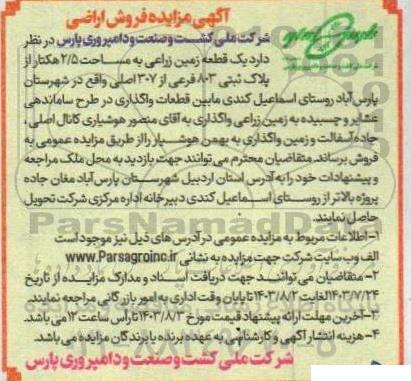 آگهی مزایده فروش اراضی
شرکت ملی کشت و صنعت و دامپروری پارس در نظر
دارد یک قطعه زمین زراعی به مساحت ۲/۵ هکتار از
پلاک ثبتی ۸۰۳ فرعی از ۳۰۷ اصلی واقع در شهرستان
پارس آباد روستای اسماعیل کندی مابین قطعات واگذاری در طرح ساماندهی
عشایر و چسبیده به زمین زراعی واگذاری به آقای منصور هوشیاری کانال اصلی ،
جاده آسفالت و زمین واگذاری به بهمن هوشیار را از طریق مزایده عمومی به
فروش برساند. متقاضیان محترم می توانند جهت بازدید به محل ملک مراجعه
و پیشنهادات خود را به آدرس استان اردبیل شهرستان پارس آباد مغان جاده
پروژه بالاتر از روستای اسماعیل کندی دبیرخانه اداره مرکزی شرکت تحویل
حاصل نمایند.
۱-اطلاعات مربوط به مزایده عمومی در آدرس های ذیل نیز موجود است
الف وب سایت شرکت جهت مزایده به نشانی www.Parsagroinc.ir
۲- متقاضیان می توانند جهت دریافت اسناد و مدارک مزایده از تاریخ
۱۴۰۳/۷/۲۴ لغایت ۱۴۰۳/۸/۲ تا پایان وقت اداری به امور بازرگانی مراجعه نمایند.
۳-آخرین مهلت ارائه پیشنهاد قیمت مورخ ۱۴۰۳/۸/۱۳ تا راس ساعت ۱۲ می باشد.
۴- هزینه انتشار آگهی و کارشناسی به عهده برنده یا برندگان مزایده می باشد.
شرکت ملی کشت و صنعت و دامپروری پارس
ParsNamadData